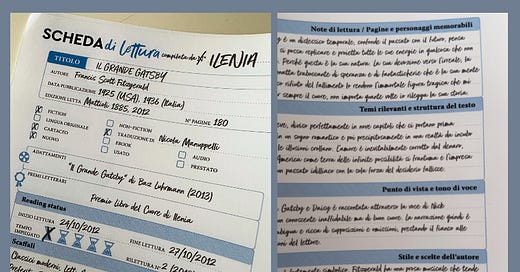 SCHEDA di Lettura compilata da ILENIA
TITOLO IL GRANDE GATSBY
AUTORE Francis Scott Fitzgerald
DATA PUBBLICAZIONE 1925 (USA), 1936 (Italia)
EDIZIONE LETTA Mattioli 1885, 2012
N° PAGINE 180
FICTION
NON-FICTION
LINGUA ORIGINALE
TRADUZIONE DI Nicola Manuppelli
CARTACEO
EBOOK
AUDIO
NUOVO
USATO
PRESTATO
ADATTAMENTI
"Il Grande Gatsby" di Baz Luhrmann (2013)
PREMI LETTERARI
Premio Libro del Cuore di Ilenia
Reading status
INIZIO LETTURA 24/10/2012
FINE LETTURA 27/10/2012
TEMPO IMPIEGATO
RILETTURA N°
Scaffali
Classici moderni,
Note di lettura / Pagine e personaggi memorabili
è un dislessico temporale, confonde il passato con il futuro, pensa
si possa replicare e proietta tutte le sue energie in qualcosa che non
Perché questa è la sua natura. La sua devozione verso l'irreale, la
tratteggiando di speranza e di fantasticherie che è la sua mente
rifiuto del fallimento lo rendono l'immortale figura tragica che mi
sempre il cuore, non importa quante volte io rilegga la sua storia.
Temi rilevanti e struttura del testo
diviso perfettamente in nove capitoli che ci portano prima
un sogno romantico e poi precipitosamente in una realtà da incubo
le illusioni crollano. L'amore è inevitabilmente corrotto dal denaro,
America come terra delle infinite possibilità si frantuma e l'impresa
un passato idilliaco con la cola forza del desiderio fallisce.
Punto di vista e tono di voce
Gatsby e Daisy è raccontata attraverso la voce di Nick
conoscente inaffidabile ma di buon cuore. La narrazione quindi è
ambigua e ricca di supposizioni e omissioni, prestando il fianco alle
del lettore.
Stile e scelte dell'autore
simbolico. Fitzgerald ha una prosa musicale che tende